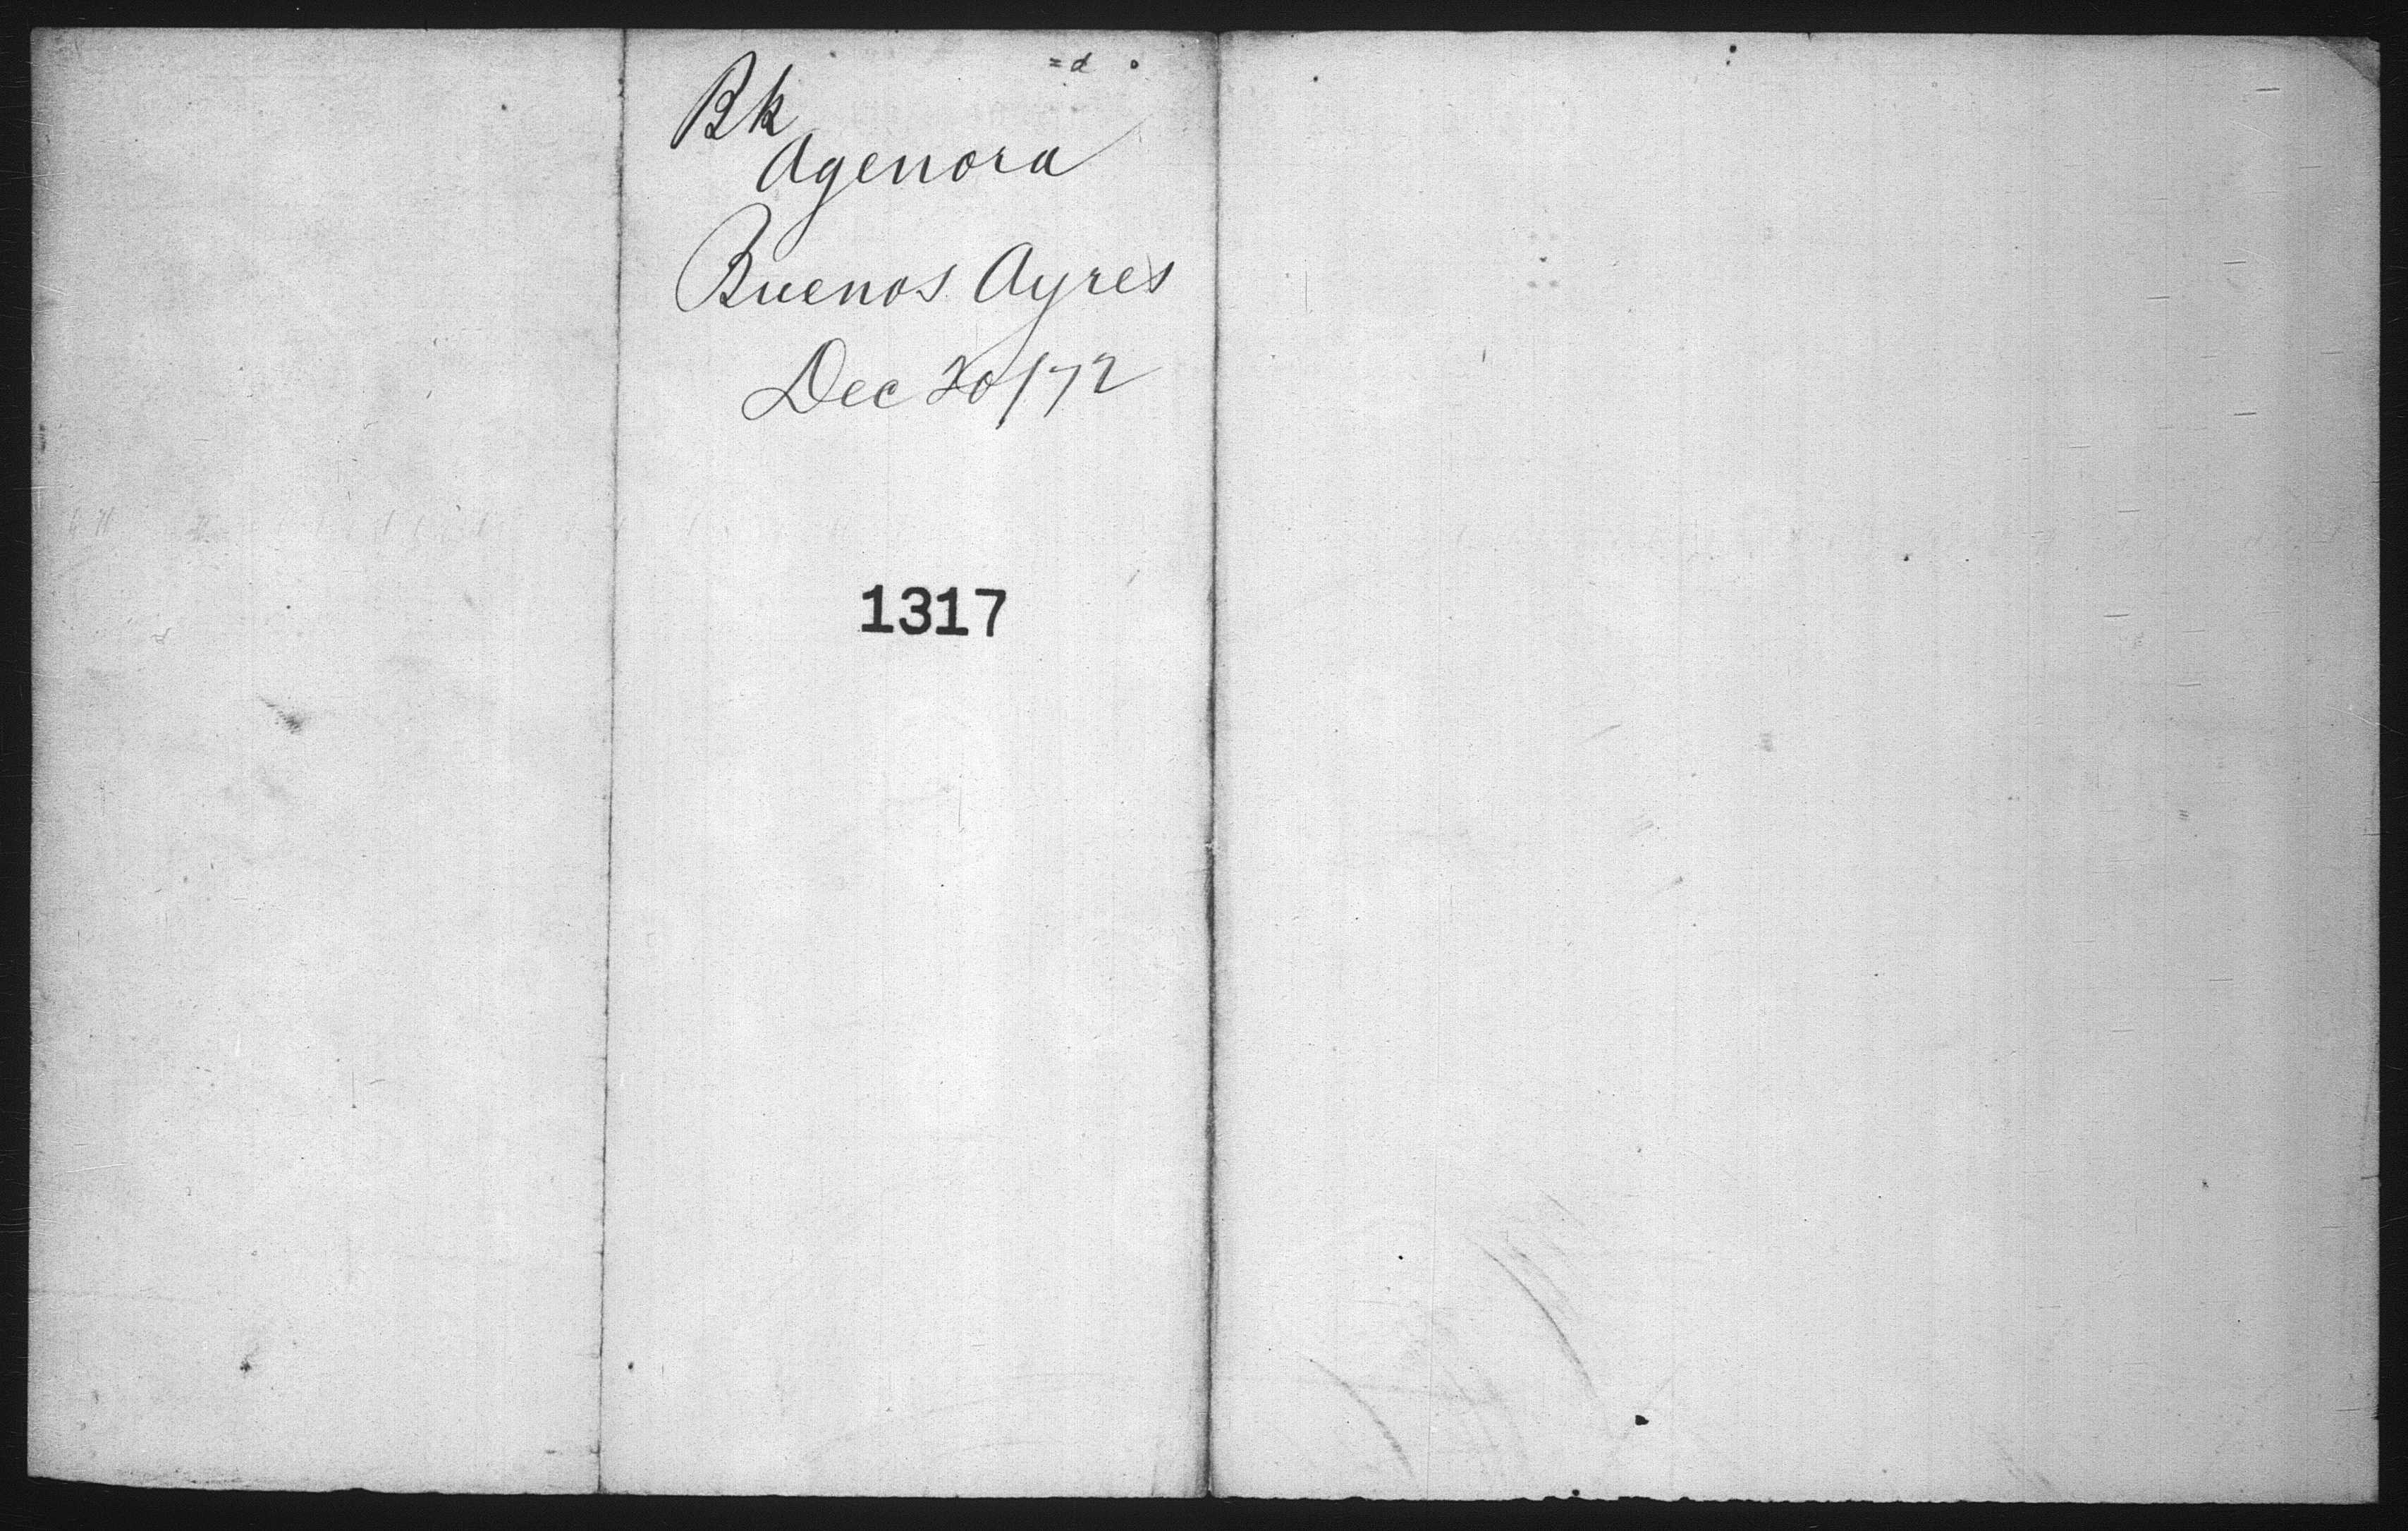 Bk
Agenora
Buenos Ayres
Dec 20/72
1317